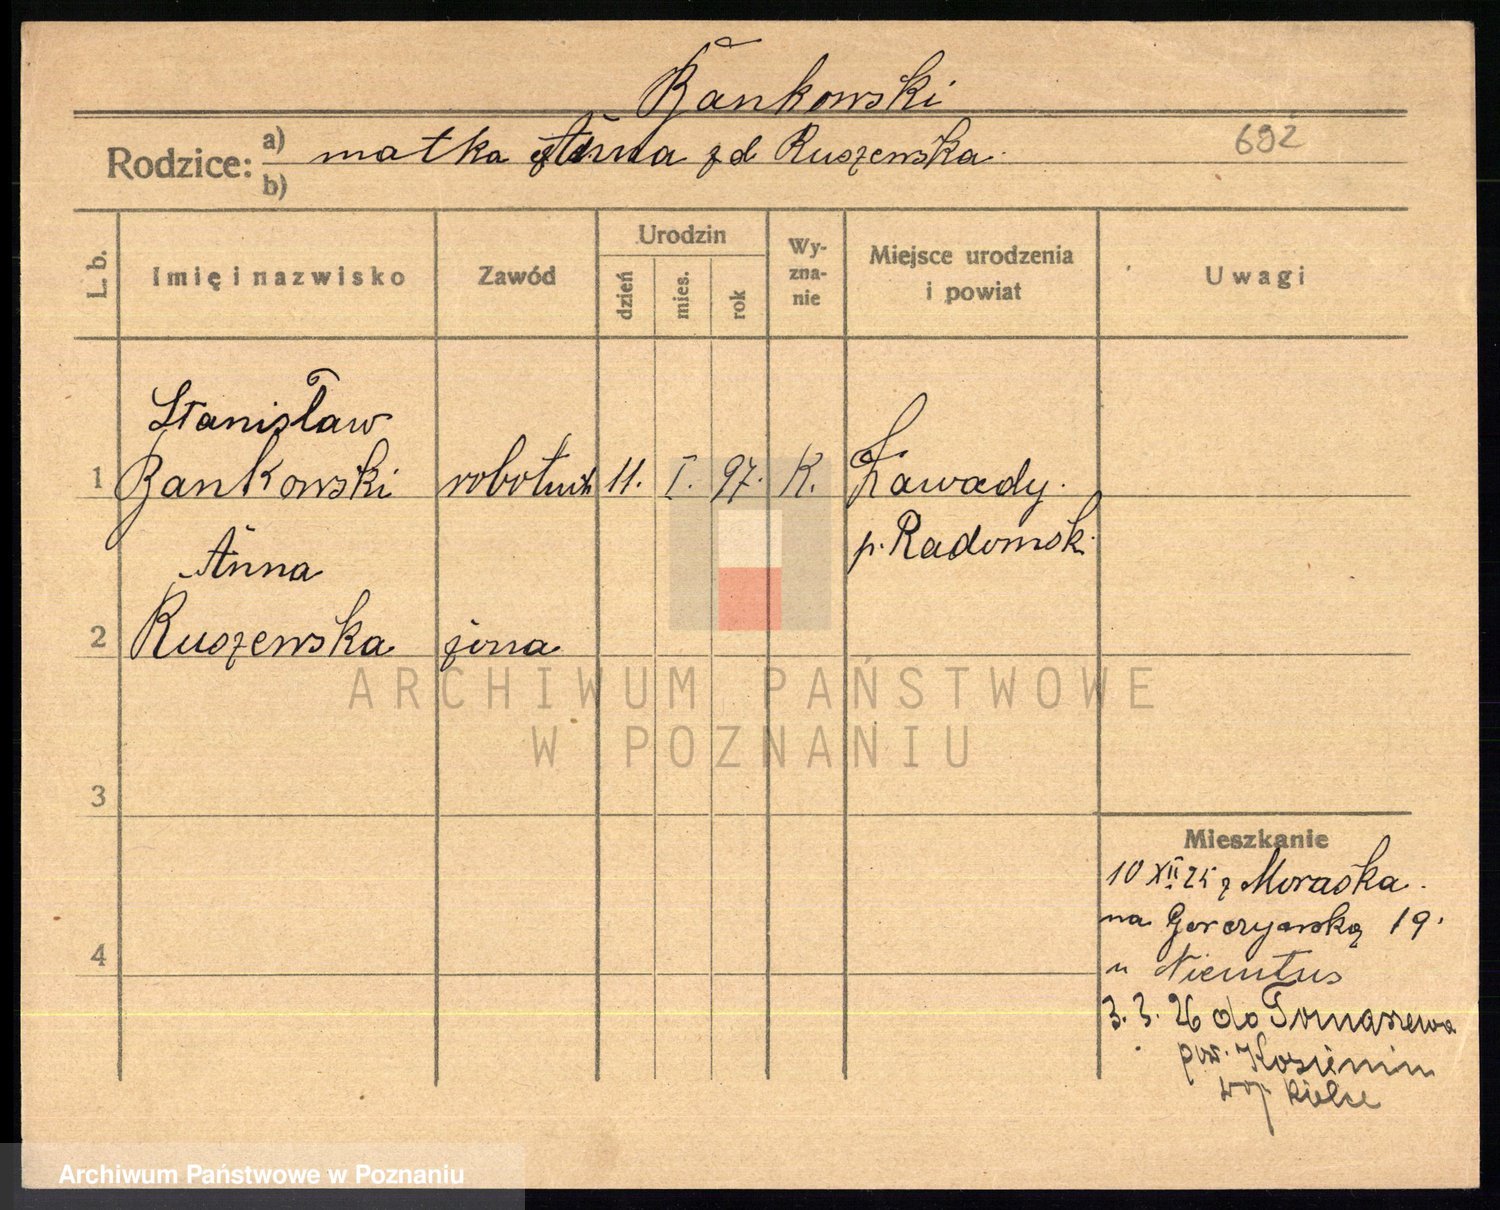 Bankowski
Rodzice: a) matka Anna zd Ruszewska.
b)
692
L. b.
Imię i nazwisko
Zawód
Urodzin
dzień
mies.
rok
Wy-
zna-
nie
Miejsce urodzenia
i powiat
Uwagi
Stanisław
1 Bankowski robotnik 11. I. 97. K. Zawady.
p. Radomsk.
Anna
2 Ruszewska żona
ARCHIWUM PAŃSTWOWE
W POZNANIU
3
Mieszkanie
10 XII 25 z Moraska.
na Gorczyńską 19.
4
u
3. 3. 26 do Tomaszewa
pow. Kozienin
woj Kielce
Archiwum Państwowe w Poznaniu